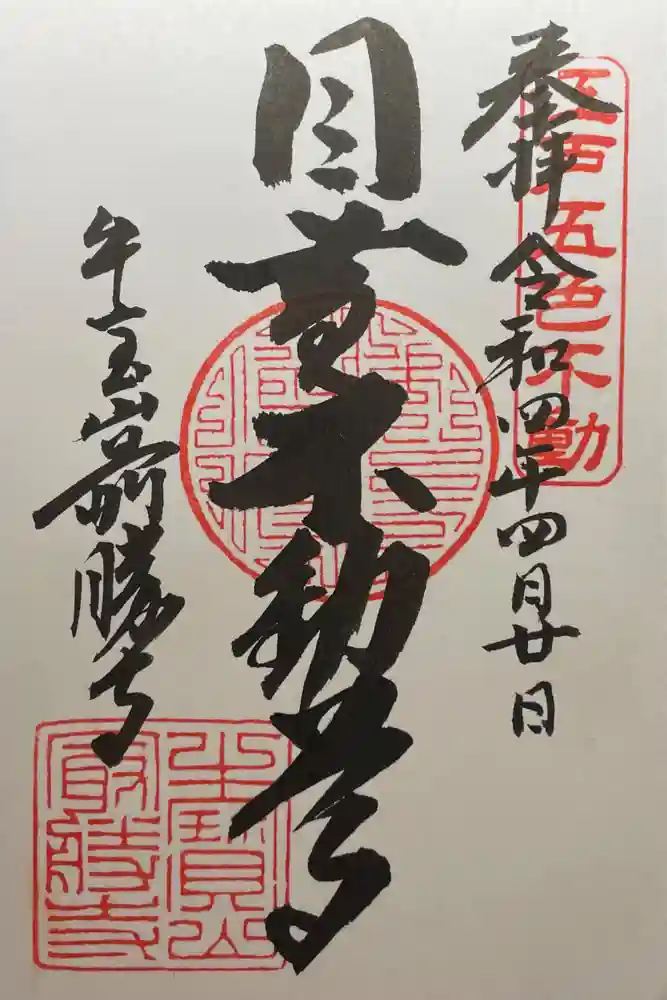 奉拝 令和四年四月廿日
江戸五色不動
目黄不動尊
牛宝山最勝寺
牛寶山
最勝寺